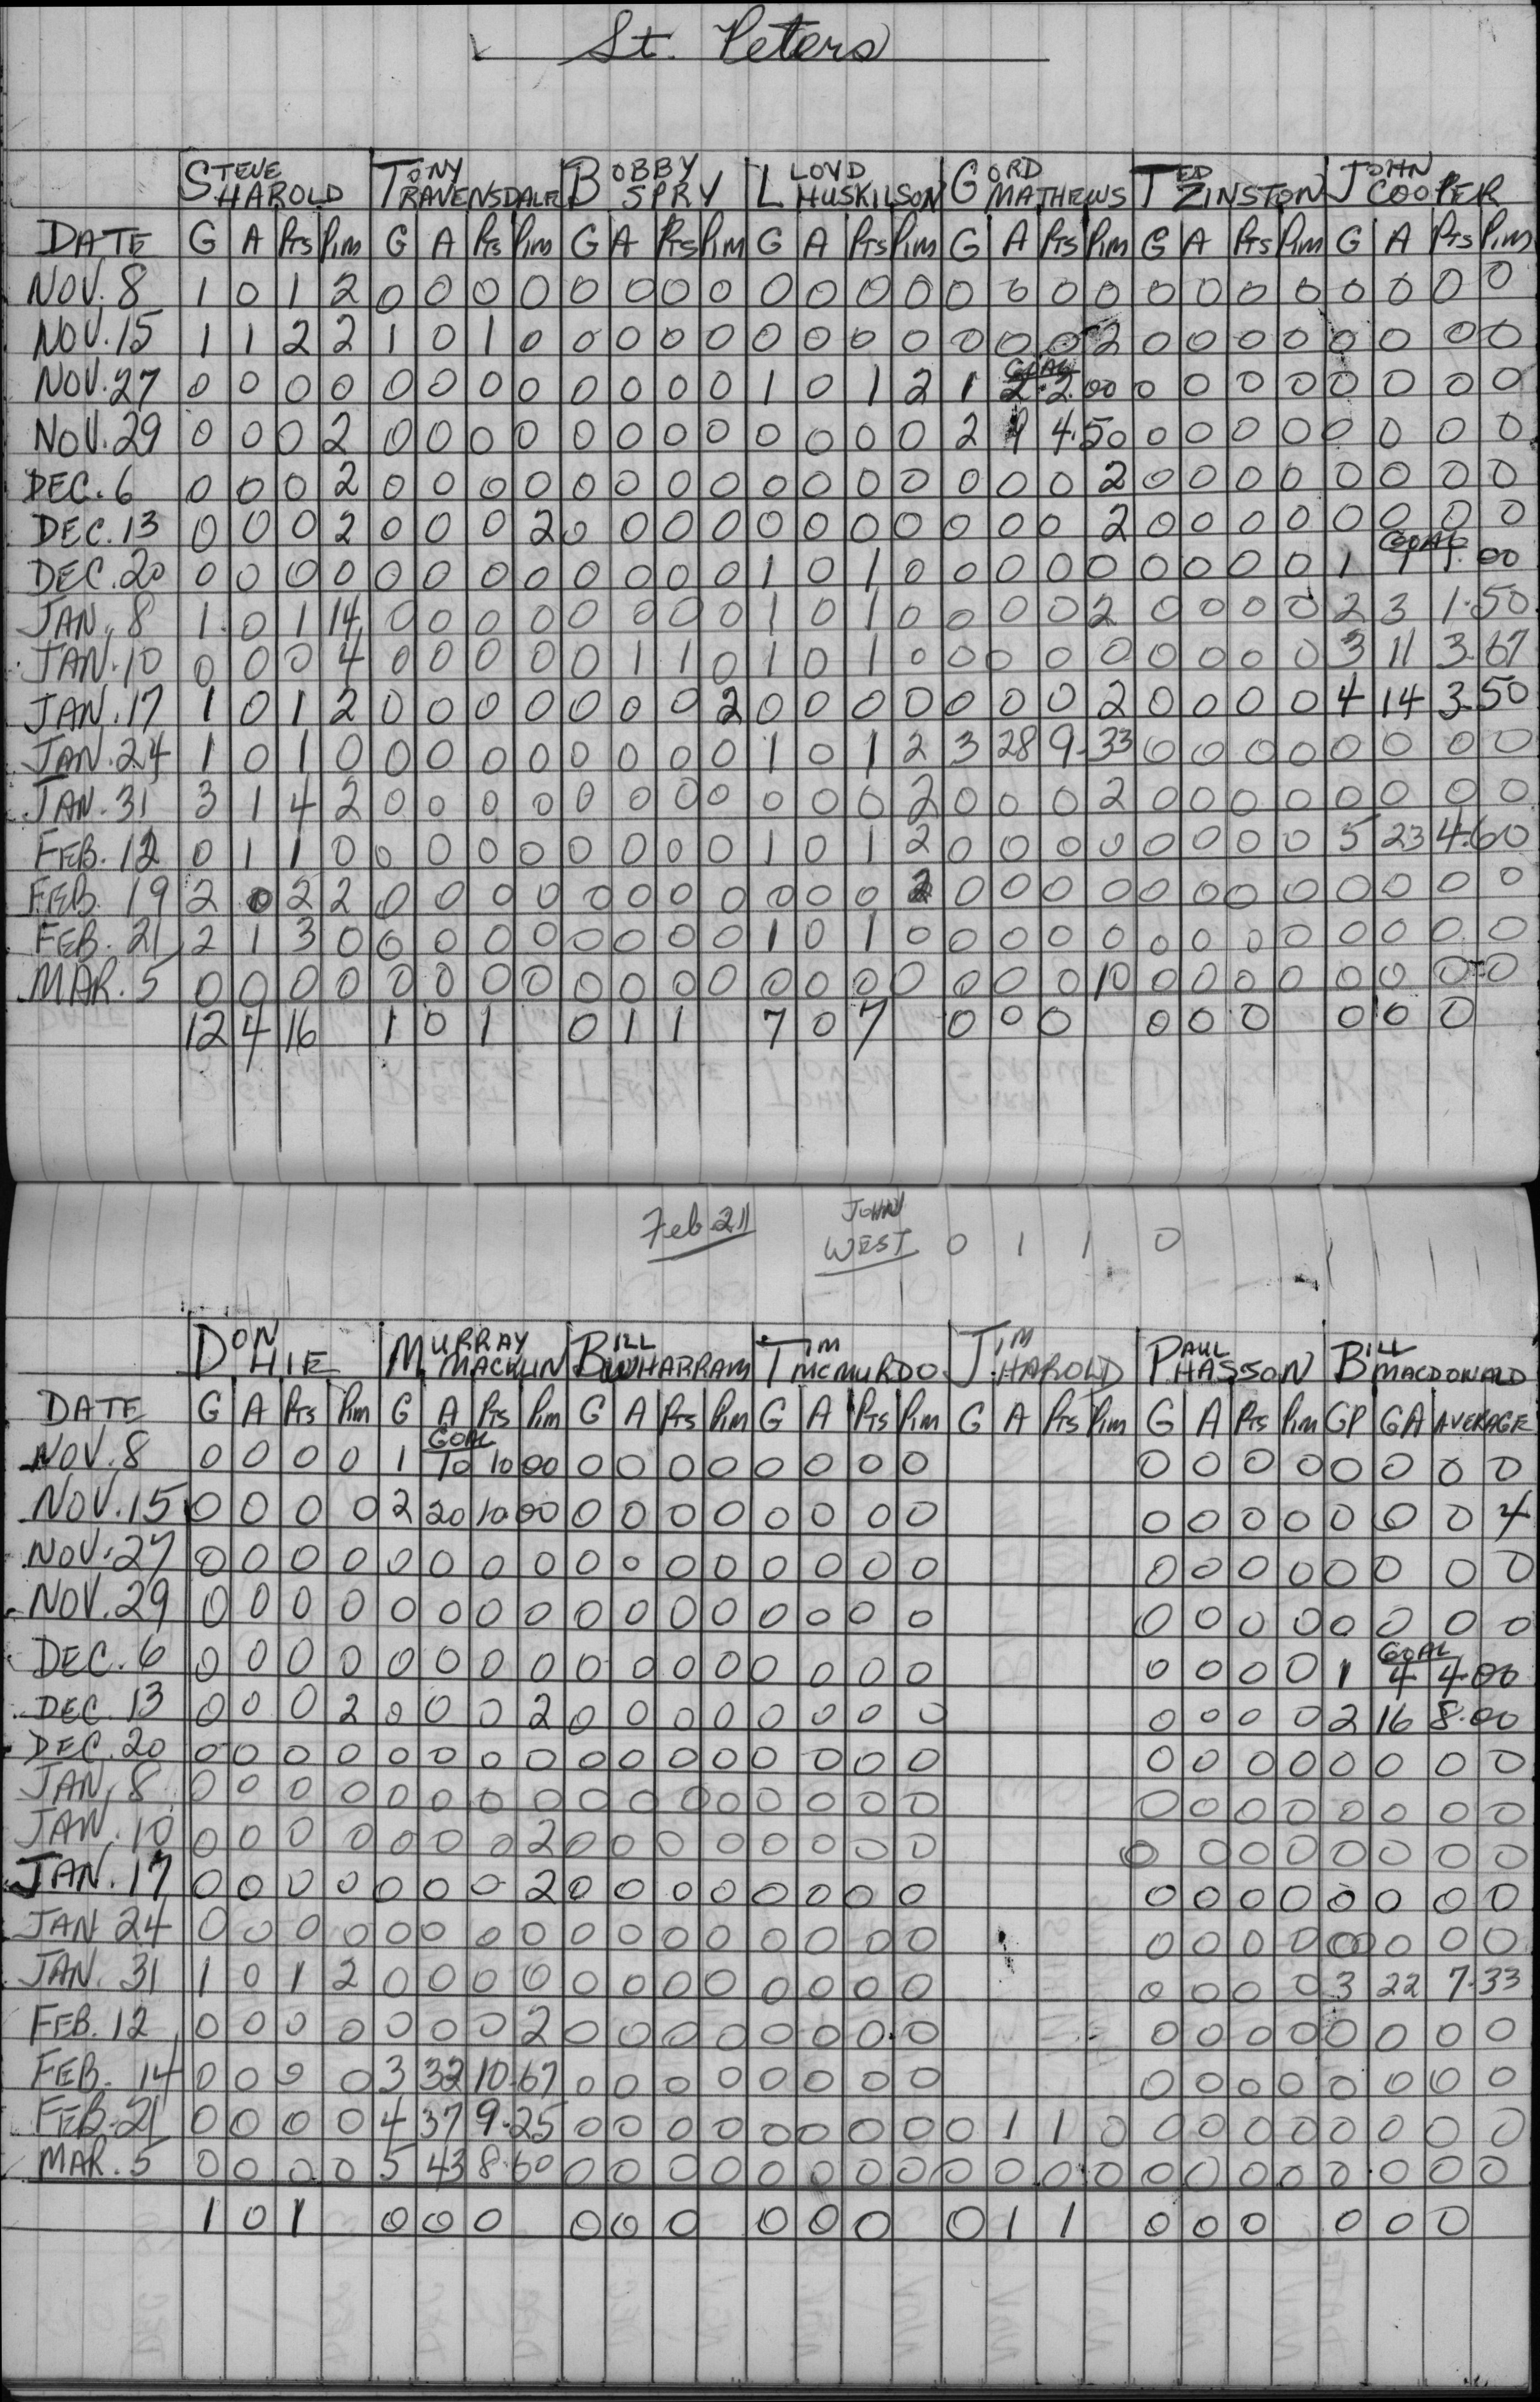 St. Peters
STEVE HAROLD TONY RAVENSDALE BOBBY SPRY LLOYD HUSKILSON GORD MATHEWS TED ZINSTON JOHN COOPER
DATE G A Pts Pim G A Pts Pim G A Pts Pim G A Pts Pim G A Pts Pim G A Pts Pim G A Pts Pim
NOV. 8 1 0 1 2 0 0 0 0 0 0 0 0 0 0 0 0 0 0 0 0 0 0 0 0 0 0 0 0
NOV. 15 1 1 2 2 1 0 1 0 0 0 0 0 0 0 0 0 0 0 0 2 0 0 0 0 0 0 0 0
GOAL
NOV. 27 0 0 0 0 0 0 0 0 0 0 0 0 1 0 1 2 1 2 2.00 0 0 0 0 0 0 0 0
NOV. 29 0 0 0 2 0 0 0 0 0 0 0 0 0 0 0 0 2 9 4.50 0 0 0 0 0 0 0 0
DEC. 6 0 0 0 2 0 0 0 0 0 0 0 0 0 0 0 0 0 0 0 2 0 0 0 0 0 0 0 0
DEC. 13 0 0 0 2 0 0 0 2 0 0 0 0 0 0 0 0 0 0 0 2 0 0 0 0 0 0 0 0
GOAL
DEC. 20 0 0 0 0 0 0 0 0 0 0 0 0 1 0 1 0 0 0 0 0 0 0 0 0 1 1 1.00
JAN. 8 1 0 1 14 0 0 0 0 0 0 0 0 1 0 1 0 0 0 0 2 0 0 0 0 2 3 1.50
JAN. 10 0 0 0 4 0 0 0 0 0 1 1 0 1 0 1 0 0 0 0 0 0 0 0 0 3 11 3.67
JAN. 17 1 0 1 2 0 0 0 0 0 0 0 2 0 0 0 0 0 0 0 2 0 0 0 0 4 14 3.50
JAN. 24 1 0 1 0 0 0 0 0 0 0 0 0 1 0 1 2 3 28 9.33 0 0 0 0 0 0 0 0
JAN. 31 3 1 4 2 0 0 0 0 0 0 0 0 0 0 0 2 0 0 0 2 0 0 0 0 0 0 0 0
FEB. 12 0 1 1 0 0 0 0 0 0 0 0 0 1 0 1 2 0 0 0 0 0 0 0 0 5 23 4.60
FEB. 19 2 0 2 2 0 0 0 0 0 0 0 0 0 0 0 2 0 0 0 0 0 0 0 0 0 0 0 0
FEB. 21 2 1 3 0 0 0 0 0 0 0 0 0 1 0 1 0 0 0 0 0 0 0 0 0 0 0 0 0
MAR. 5 0 0 0 0 0 0 0 0 0 0 0 0 0 0 0 0 0 0 0 10 0 0 0 0 0 0 0 0
12 4 16 1 0 1 0 1 1 7 0 7 0 0 0 0 0 0 0 0 0
Feb 21 JOHN WEST 0 1 1 0
DON HIE MURRAY MACKLIN BILL WHARRAM TIM MCMURDO JIM HAROLD PAUL HASSON BILL MACDONALD
DATE G A Pts Pim G A Pts Pim G A Pts Pim G A Pts Pim G A Pts Pim G A Pts Pim GP GA AVERAGE
GOAL
NOV. 8 0 0 0 0 1 10 10 00 0 0 0 0 0 0 0 0 0 0 0 0 0 0 0 0
NOV. 15 0 0 0 0 2 20 10 00 0 0 0 0 0 0 0 0 0 0 0 0 0 0 0 4
NOV. 27 0 0 0 0 0 0 0 0 0 0 0 0 0 0 0 0 0 0 0 0 0 0 0 0
NOV. 29 0 0 0 0 0 0 0 0 0 0 0 0 0 0 0 0 0 0 0 0 0 0 0 0
GOAL
DEC. 6 0 0 0 0 0 0 0 0 0 0 0 0 0 0 0 0 0 0 0 0 1 4 4.00
DEC. 13 0 0 0 2 0 0 0 2 0 0 0 0 0 0 0 0 0 0 0 0 2 16 8.00
DEC. 20 0 0 0 0 0 0 0 0 0 0 0 0 0 0 0 0 0 0 0 0 0 0 0 0
JAN. 8 0 0 0 0 0 0 0 0 0 0 0 0 0 0 0 0 0 0 0 0 0 0 0 0
JAN. 10 0 0 0 0 0 0 0 2 0 0 0 0 0 0 0 0 0 0 0 0 0 0 0 0
JAN. 17 0 0 0 0 0 0 0 2 0 0 0 0 0 0 0 0 0 0 0 0 0 0 0 0
JAN 24 0 0 0 0 0 0 0 0 0 0 0 0 0 0 0 0 0 0 0 0 0 0 0 0
JAN. 31 1 0 1 2 0 0 0 0 0 0 0 0 0 0 0 0 0 0 0 0 3 22 7.33
FEB. 12 0 0 0 0 0 0 0 2 0 0 0 0 0 0 0 0 0 0 0 0 0 0 0 0
FEB. 14 0 0 0 0 3 32 10.67 0 0 0 0 0 0 0 0 0 0 0 0 0 0 0 0
FEB. 21 0 0 0 0 4 37 9.25 0 0 0 0 0 0 0 0 0 1 1 0 0 0 0 0 0 0 0 0
MAR. 5 0 0 0 0 5 43 8.60 0 0 0 0 0 0 0 0 0 0 0 0 0 0 0 0 0 0 0 0
1 0 1 0 0 0 0 0 0 0 0 0 0 1 1 0 0 0 0 0 0